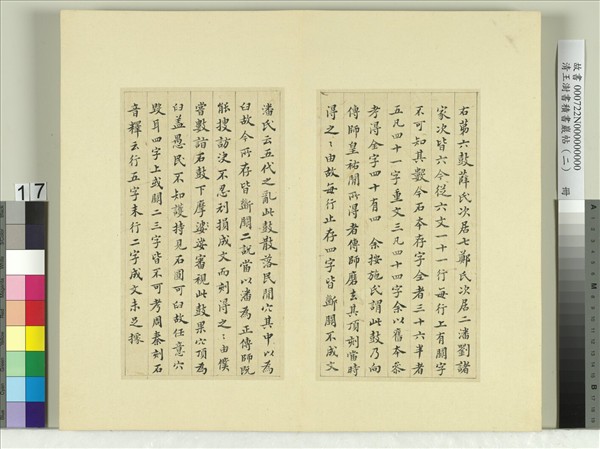 右第六鼓薛氏次居七鄭氏次居二潘劉諸
家次皆六今從六文一十一行每行上有闕字
不可知其數今石本存字全者三十六半者
五凡四十一字重文三凡四十四字余以舊本叅
考得全字四十有四 余按施氏謂此鼓乃向
傳師皇祐間所得者傳師磨去其頂刻當時
得之〻由故每行止存四字皆斷闕不成文
潘氏云五代之亂此鼓散落民間穴其中以為
臼故今所存皆斷闕二説當以潘為正傳師既
能搜訪決不忍剗損成文而刻得之〻由僕
嘗數詣石鼓下摩挲審視此鼓果穴頂為
臼蓋愚民不知護持見石圓可臼故任意穴
毀耳四字上或闕二三字皆不可考周秦刻石
音釋云行五字末行二字成文未足據
故書 000722N000000000
清王澍書積書巖帖(二) 冊
17